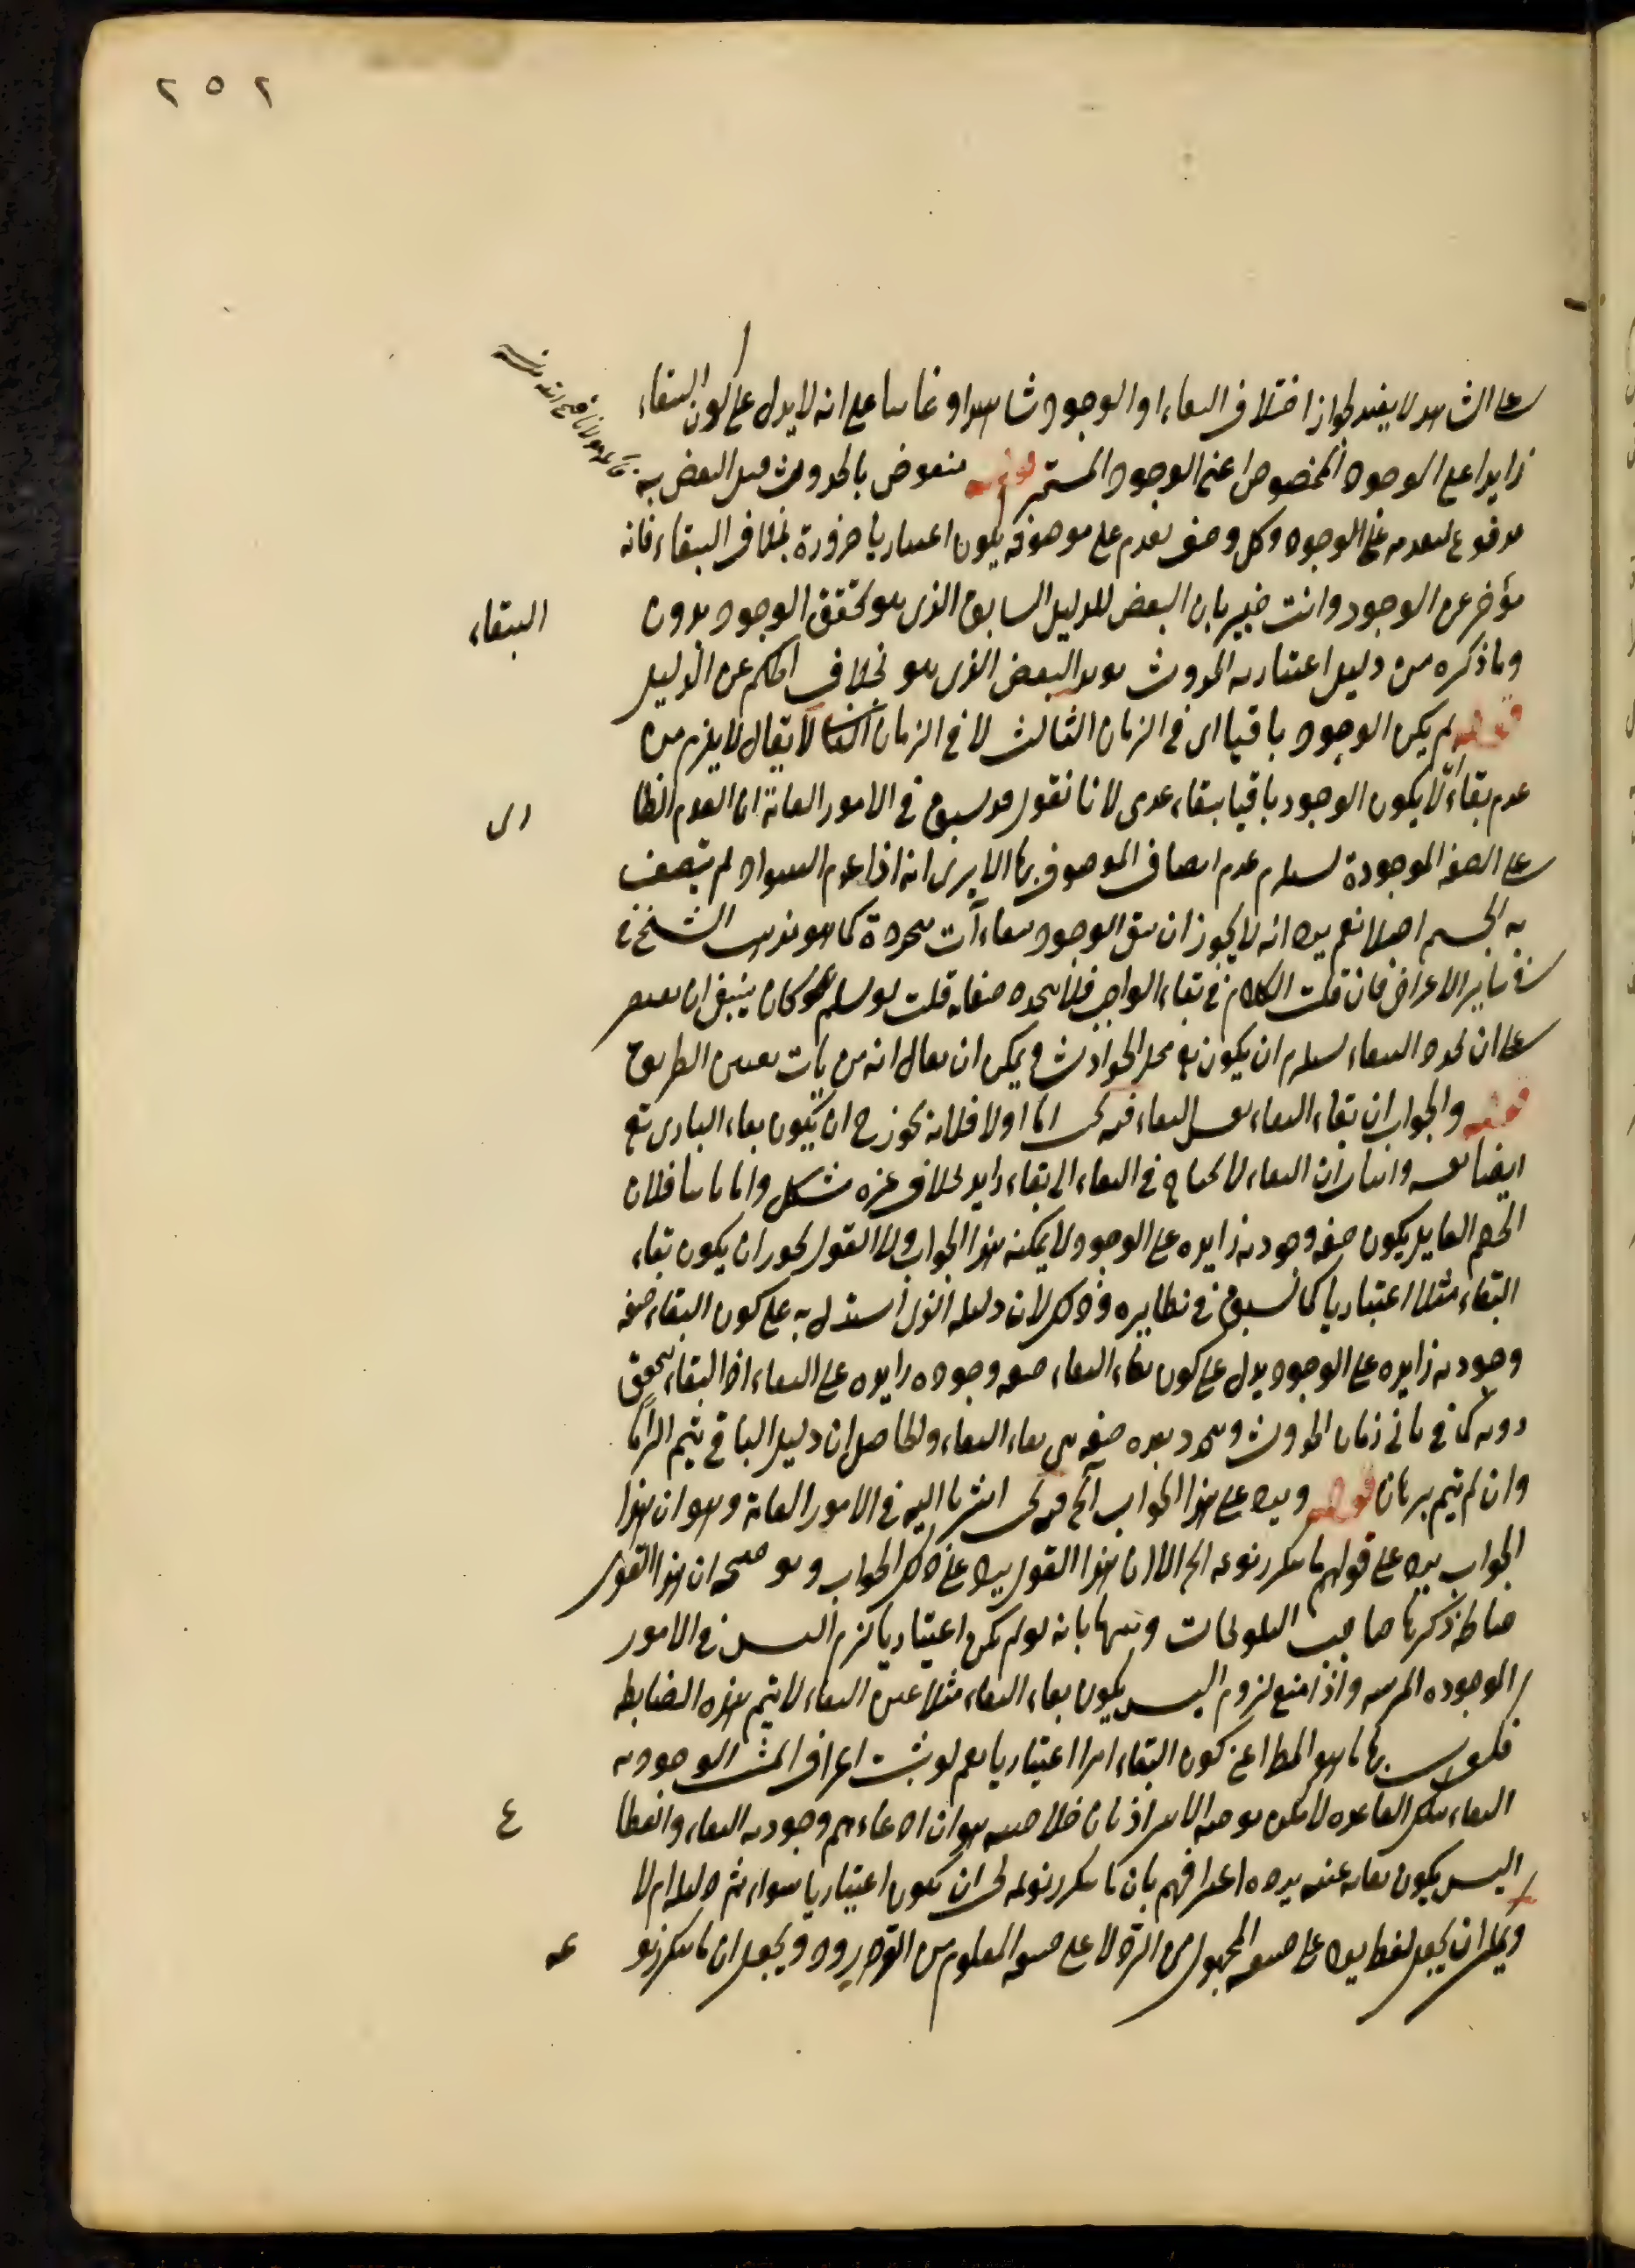 ٢٥٢
على الشاهد لا يفيد لجواز اختلاف البقاء او الوجود شاهدا وغائبا على انه لا يدل على كون البقاء
زايدا على الوجود المخصوص اعنى الوجود المستمر قوله منقوض بالحدوث قيل النقض به
مدفوع لتقدمه على الوجود وكل وصف تقدم على موصوفه يكون اعتباريا ضرورة بخلاف البقاء فانه
مؤخر عن الوجود وانت خبير بان النقض للدليل السابق الذى هو تحقق الوجود بدون البقاء
وما ذكره من دليل اعتبارية الحدوث يؤيد النقض الذى هو تخلف الحكم عن الدليل
قوله لم يكن الوجود باقيا اى فى الزمان الثالث لا فى الزمان الثانى لا يقال لا يلزم من
عدم بقاء ان لا يكون الوجود باقيا ببقاء عدمى لانا نقول قد سبق فى الامور العامة ان العدم الطارى
على الصفة الموجودة يستلزم عدم اتصاف الموصوف بها الا يرى انه اذا عدم السواد لم يتصف
به الجسم اصلا نعم يرد انه لا يجوز ان يبقى الوجود ببقاءآت متجددة كما هو مذهب الشيخ
فى ساير الاعراض فان قلت الكلام فى بقاء الواجب فلا يتجدد صفاته قلت لو سلم فكان ينبغى ان
على ان تجدد البقاء يستلزم ان يكون تع محل الحوادث ويمكن ان يقال انه من باب تعيين الطريق
قوله والجواب ان بقاء البقاء نفس البقاء فيه بحث اما اولا فلانه يجوز ح ان يكون بقاء البارى تع
ايضا نفسه واثبات ان البقاء لا يحتاج فى البقاء الى بقاء زايد بخلاف غيره مشكل واما ثانيا فلان
الخصم القايل بكون صفة وجودية زايدة على الوجود لا يمكنه هذا الجواب ولا القول بجواز ان يكون بقاء
البقاء مثلا اعتباريا كما سبق فى نظايره وذلك لان دليله الذى استدل به على كون البقاء صفة
وجودية زايدة على الوجود يدل على كون بقاء البقاء صفة وجودية زايدة على البقاء اذ البقاء يتحقق
دونه كما فى ثانى زمان الحدوث ويتجدد بعده صفة هى بقاء البقاء والحاصل ان دليل الباقى يتم الزاما
وان لم يتم برهانا قوله ويرد على هذا الجواب آلخ فيه بحث اشرنا اليه فى الامور العامة وهو ان هذا
الجواب يرد على قولهم ما يتكرر نوعه الخ لا ان هذا القول يرد على ذلك الجواب وتوضيحه ان هذا القول
ضابطة ذكرها صاحب التلويحات وبينها بانه لو لم يكن اعتباريا لزم التس فى الامور
الموجودة المرتبة واذا منع لزوم التس بكون بقاء البقاء مثلا عين البقاء لا يتم هذه الضابطة
بها ما هو المط اعنى كون البقاء امرا اعتباريا نعم لو ثبت اعتراف المثبت لوجودية
البقاء بتلك القاعدة لا يمكن توجيه الايراد بان خلاصته هو ان ادعاءهم وجودية البقاء وانقطاع
التس بكون بقائه عينه يرده اعترافهم بان ما يتكرر نوعه يجب ان يكون اعتباريا سواء تم دليله ام لا
ويمكن ان يجعل لفظ يرد على صيغة المجهول من الرد لا على صيغة المعلوم من الورود ويجعل ان ما يتكرر نوعه